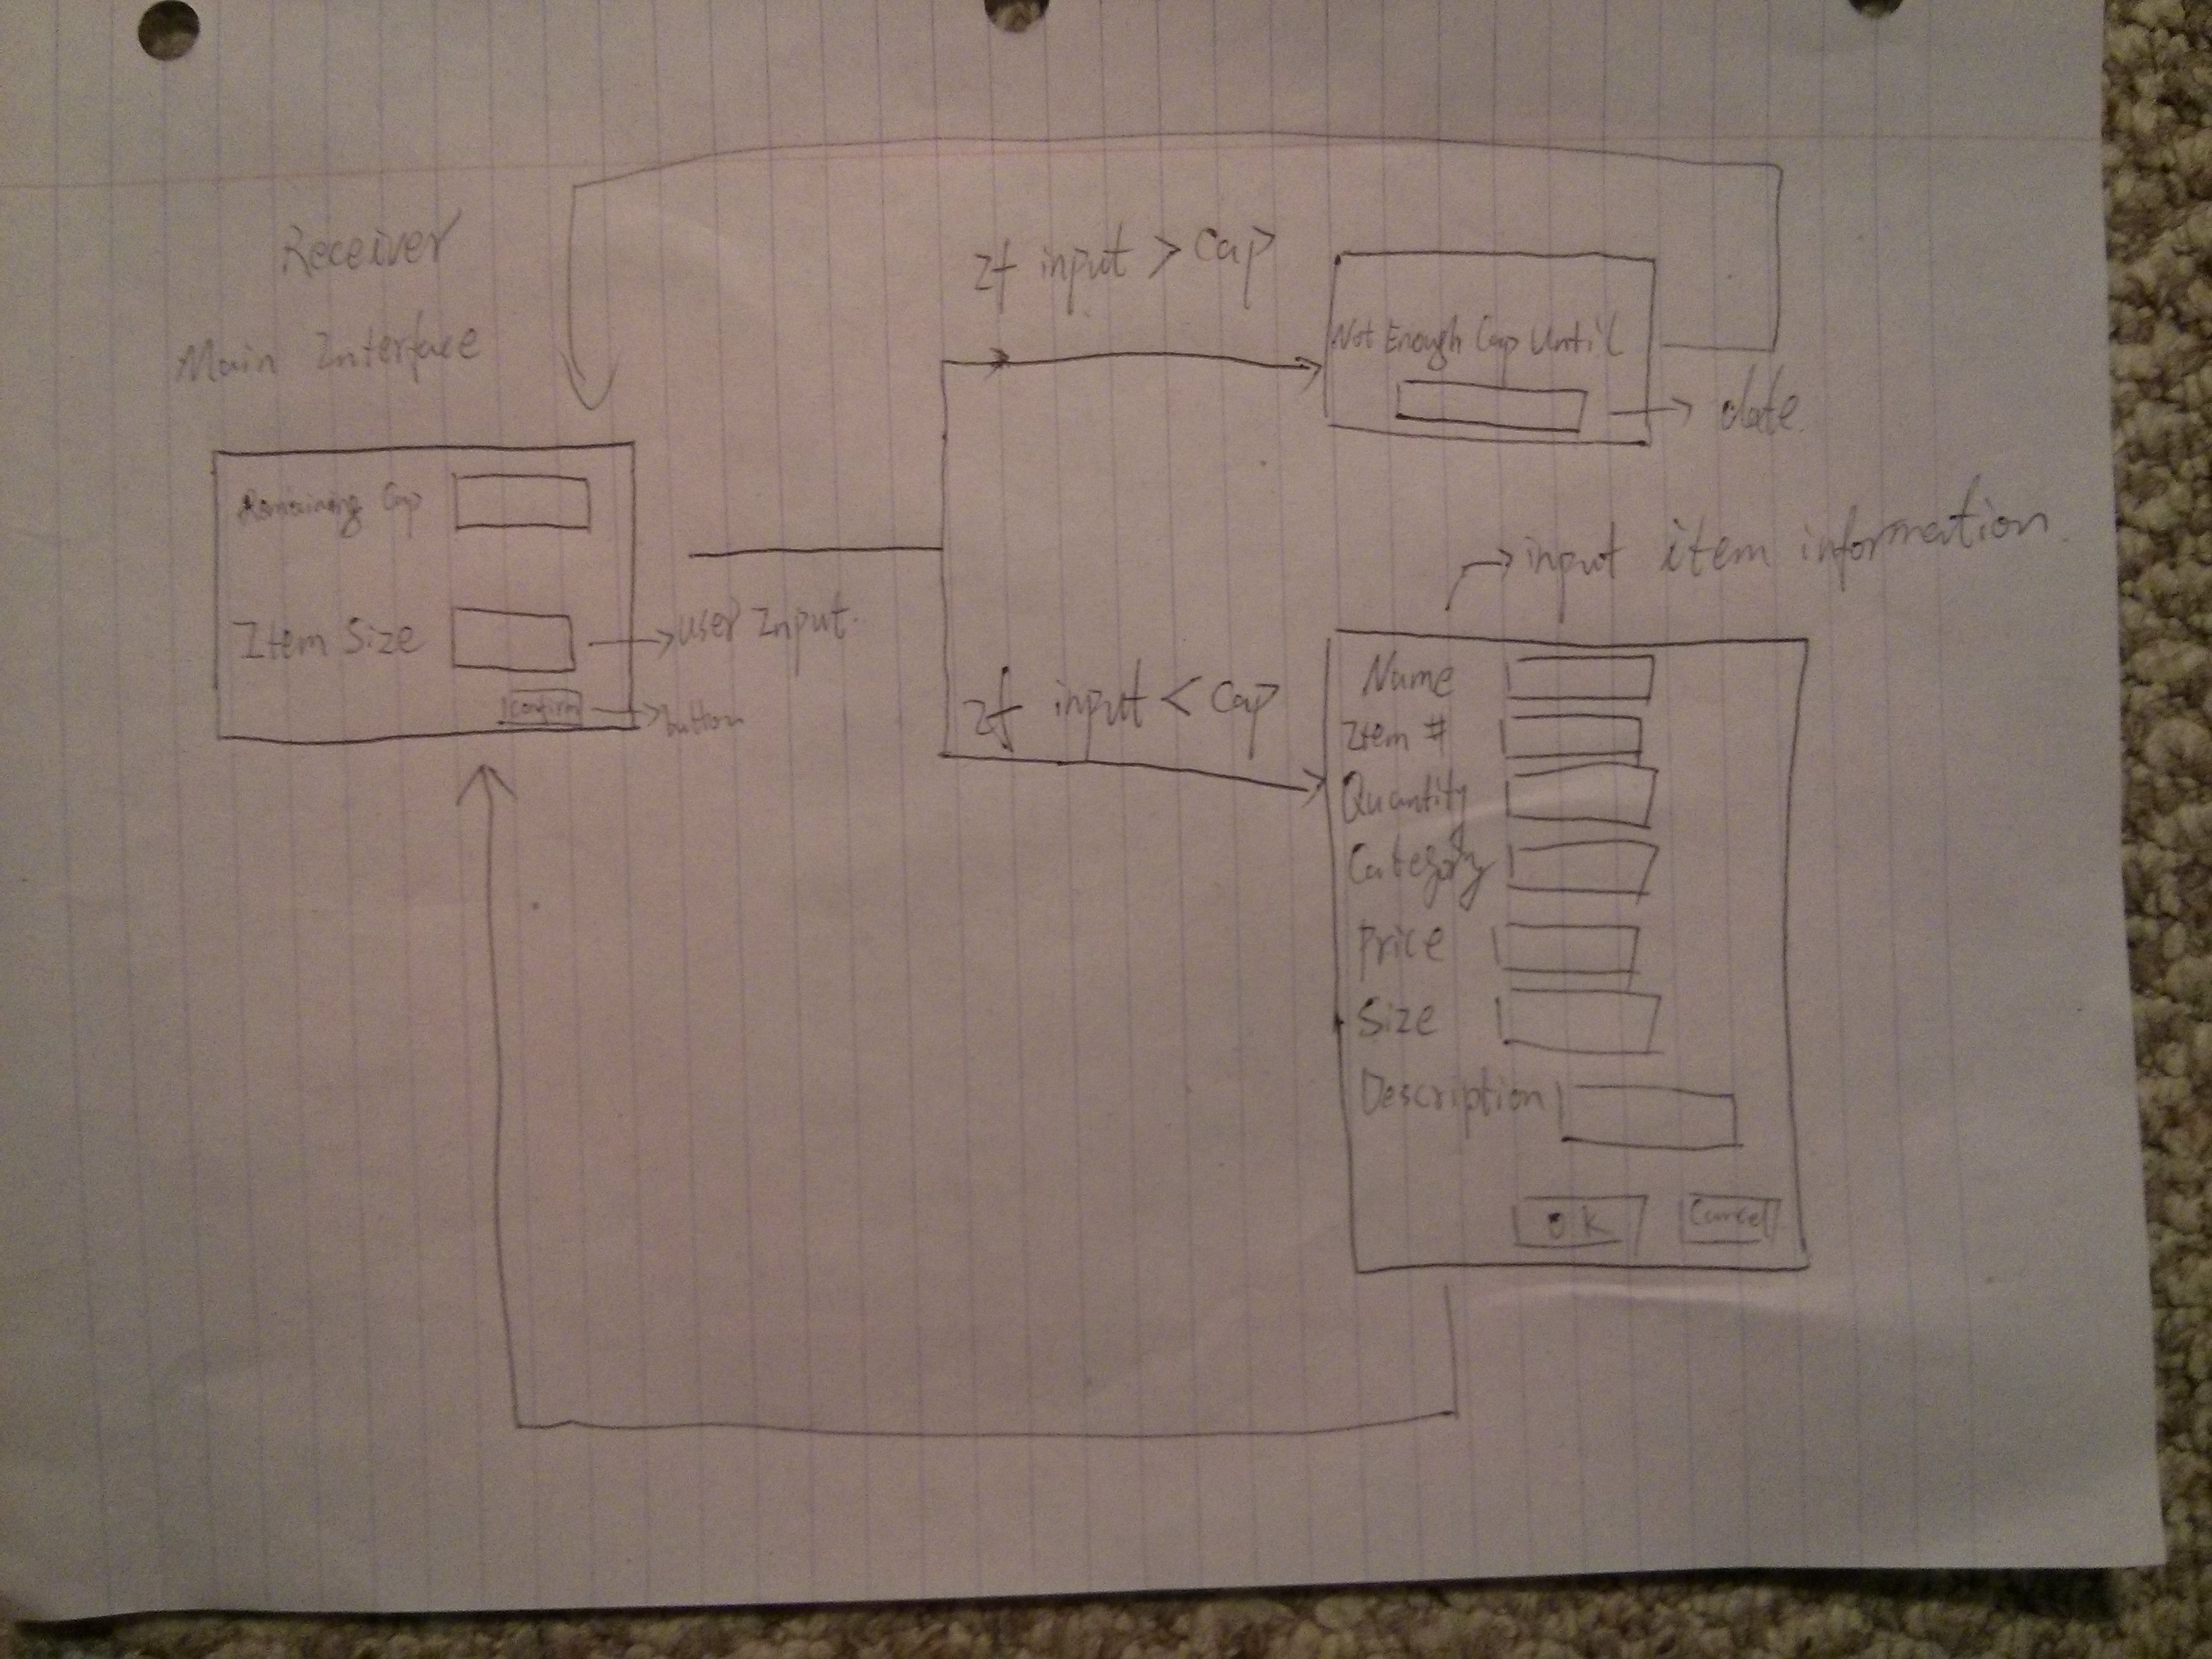 Receiver
Main Interface
Remaining Cap
Item Size
confirm
user Input.
button
If input > Cap
Not Enough Cap Until
date.
If input < Cap
input item information.
Name
Item #
Quantity
Category
Price
Size
Description
OK
Cancel